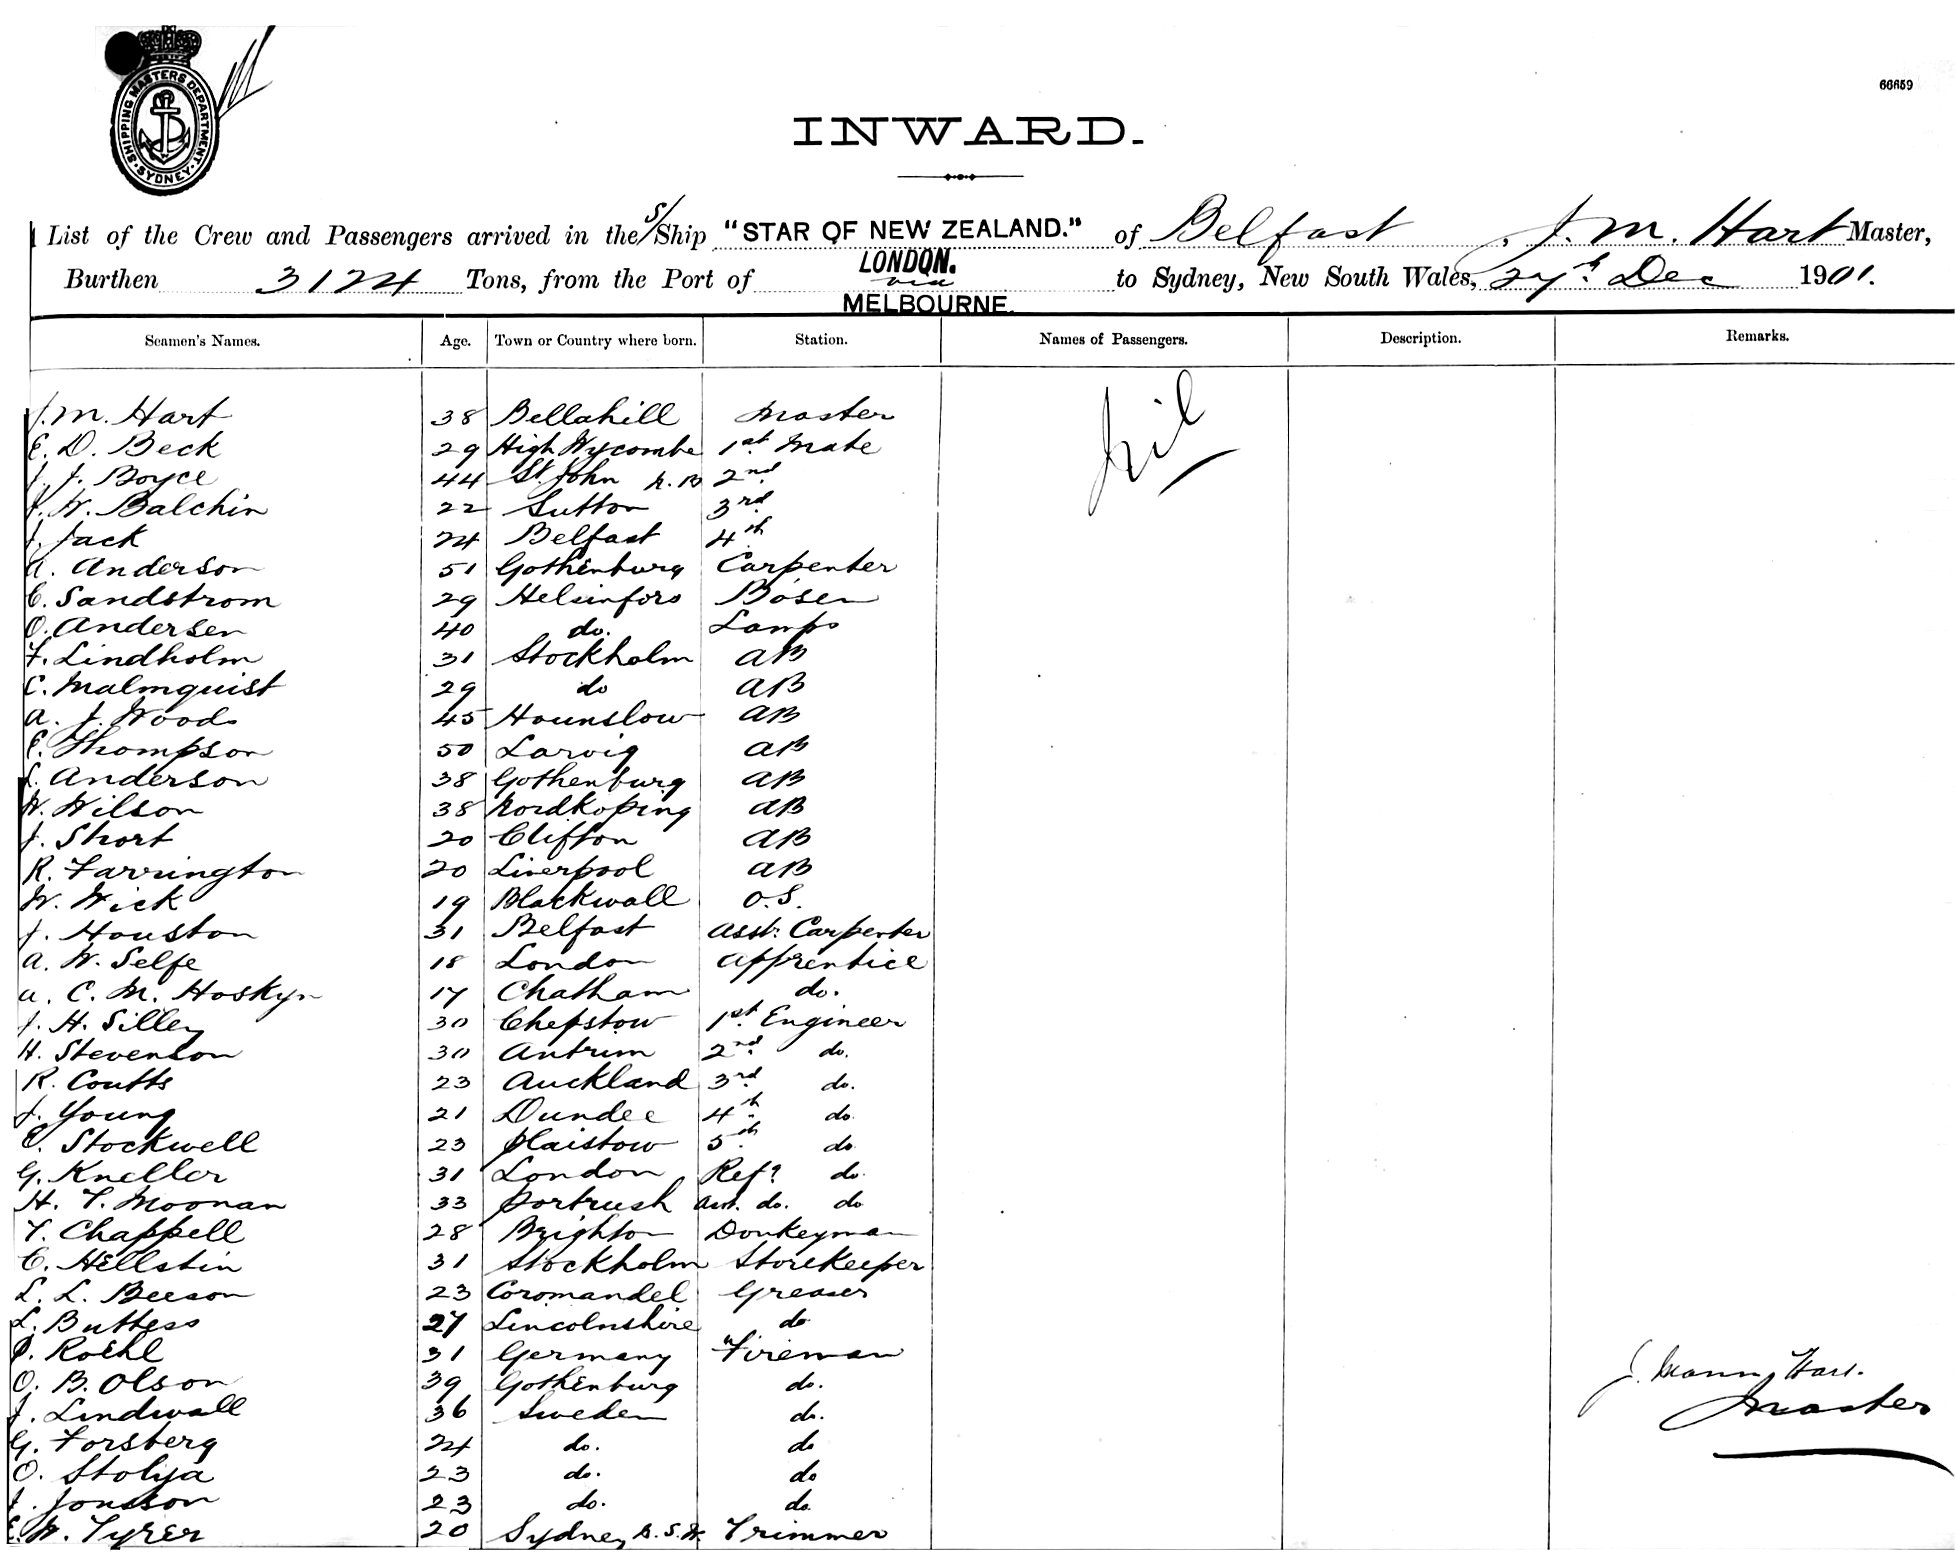 SHIPPING MASTERS DEPARTMENT. SYDNEY
66659
INWARD.
List of the Crew and Passengers arrived in the S/Ship "STAR OF NEW ZEALAND." of Belfast, J. M. Hart Master,
Burthen 3124 Tons, from the Port of LONDON. via MELBOURNE. to Sydney, New South Wales, 27th Dec 1901.
Seamen's Names. Age. Town or Country where born. Station. Names of Passengers. Description. Remarks.
J. M. Hart 38 Bellahill Master Nil
E. D. Beck 29 High Wycombe 1st Mate
J. J. Boyce 44 St. John N. B 2nd
W. Balchin 22 Sutton 3rd
J. Jack 24 Belfast 4th
A. Anderson 51 Gothenburg Carpenter
C. Sandstrom 29 Helsinfors Bosen
O. Andersen 40 do. Lamps
F. Lindholm 31 Stockholm AB
C. Malmquist 29 do AB
A. J. Woods 45 Hounslow AB
E. Thompson 50 Larvig AB
Anderson 38 Gothenburg AB
W. Wilson 38 Nordkoping AB
J. Short 20 Clifton AB
R. Farrington 20 Liverpool AB
W. Wick 19 Blackwall O.S.
J. Houston 31 Belfast Asst. Carpenter
A. W. Selfe 18 London Apprentice
A. C. M. Hoskyn 17 Chatham do.
J. H. Silley 30 Chepstow 1st Engineer
H. Stevenson 30 Antrim 2nd do.
R. Coutts 23 Auckland 3rd do.
J. Young 21 Dundee 4th do.
C. Stockwell 23 Plaistow 5th do
G. Kneller 31 London Refr do.
H. T. Moonan 33 Portrush Asst. do. do
T. Chappell 28 Brighton Donkeyman
C. Hellstin 31 Stockholm Storekeeper
L. L. Beeson 23 Coromandel Greaser
L. Buttess 27 Lincolnshire do
Roehl 31 Germany Fireman
O. B. Olson 39 Gothenburg do.
J. Lindwall 36 Sweden do.
G. Forsberg 24 do. do
O. Stolja 23 do. do
J. Jonsson 23 do. do.
E. W. Tyrer 20 Sydney N.S.W. Trimmer
J. Mann Hart.
Master